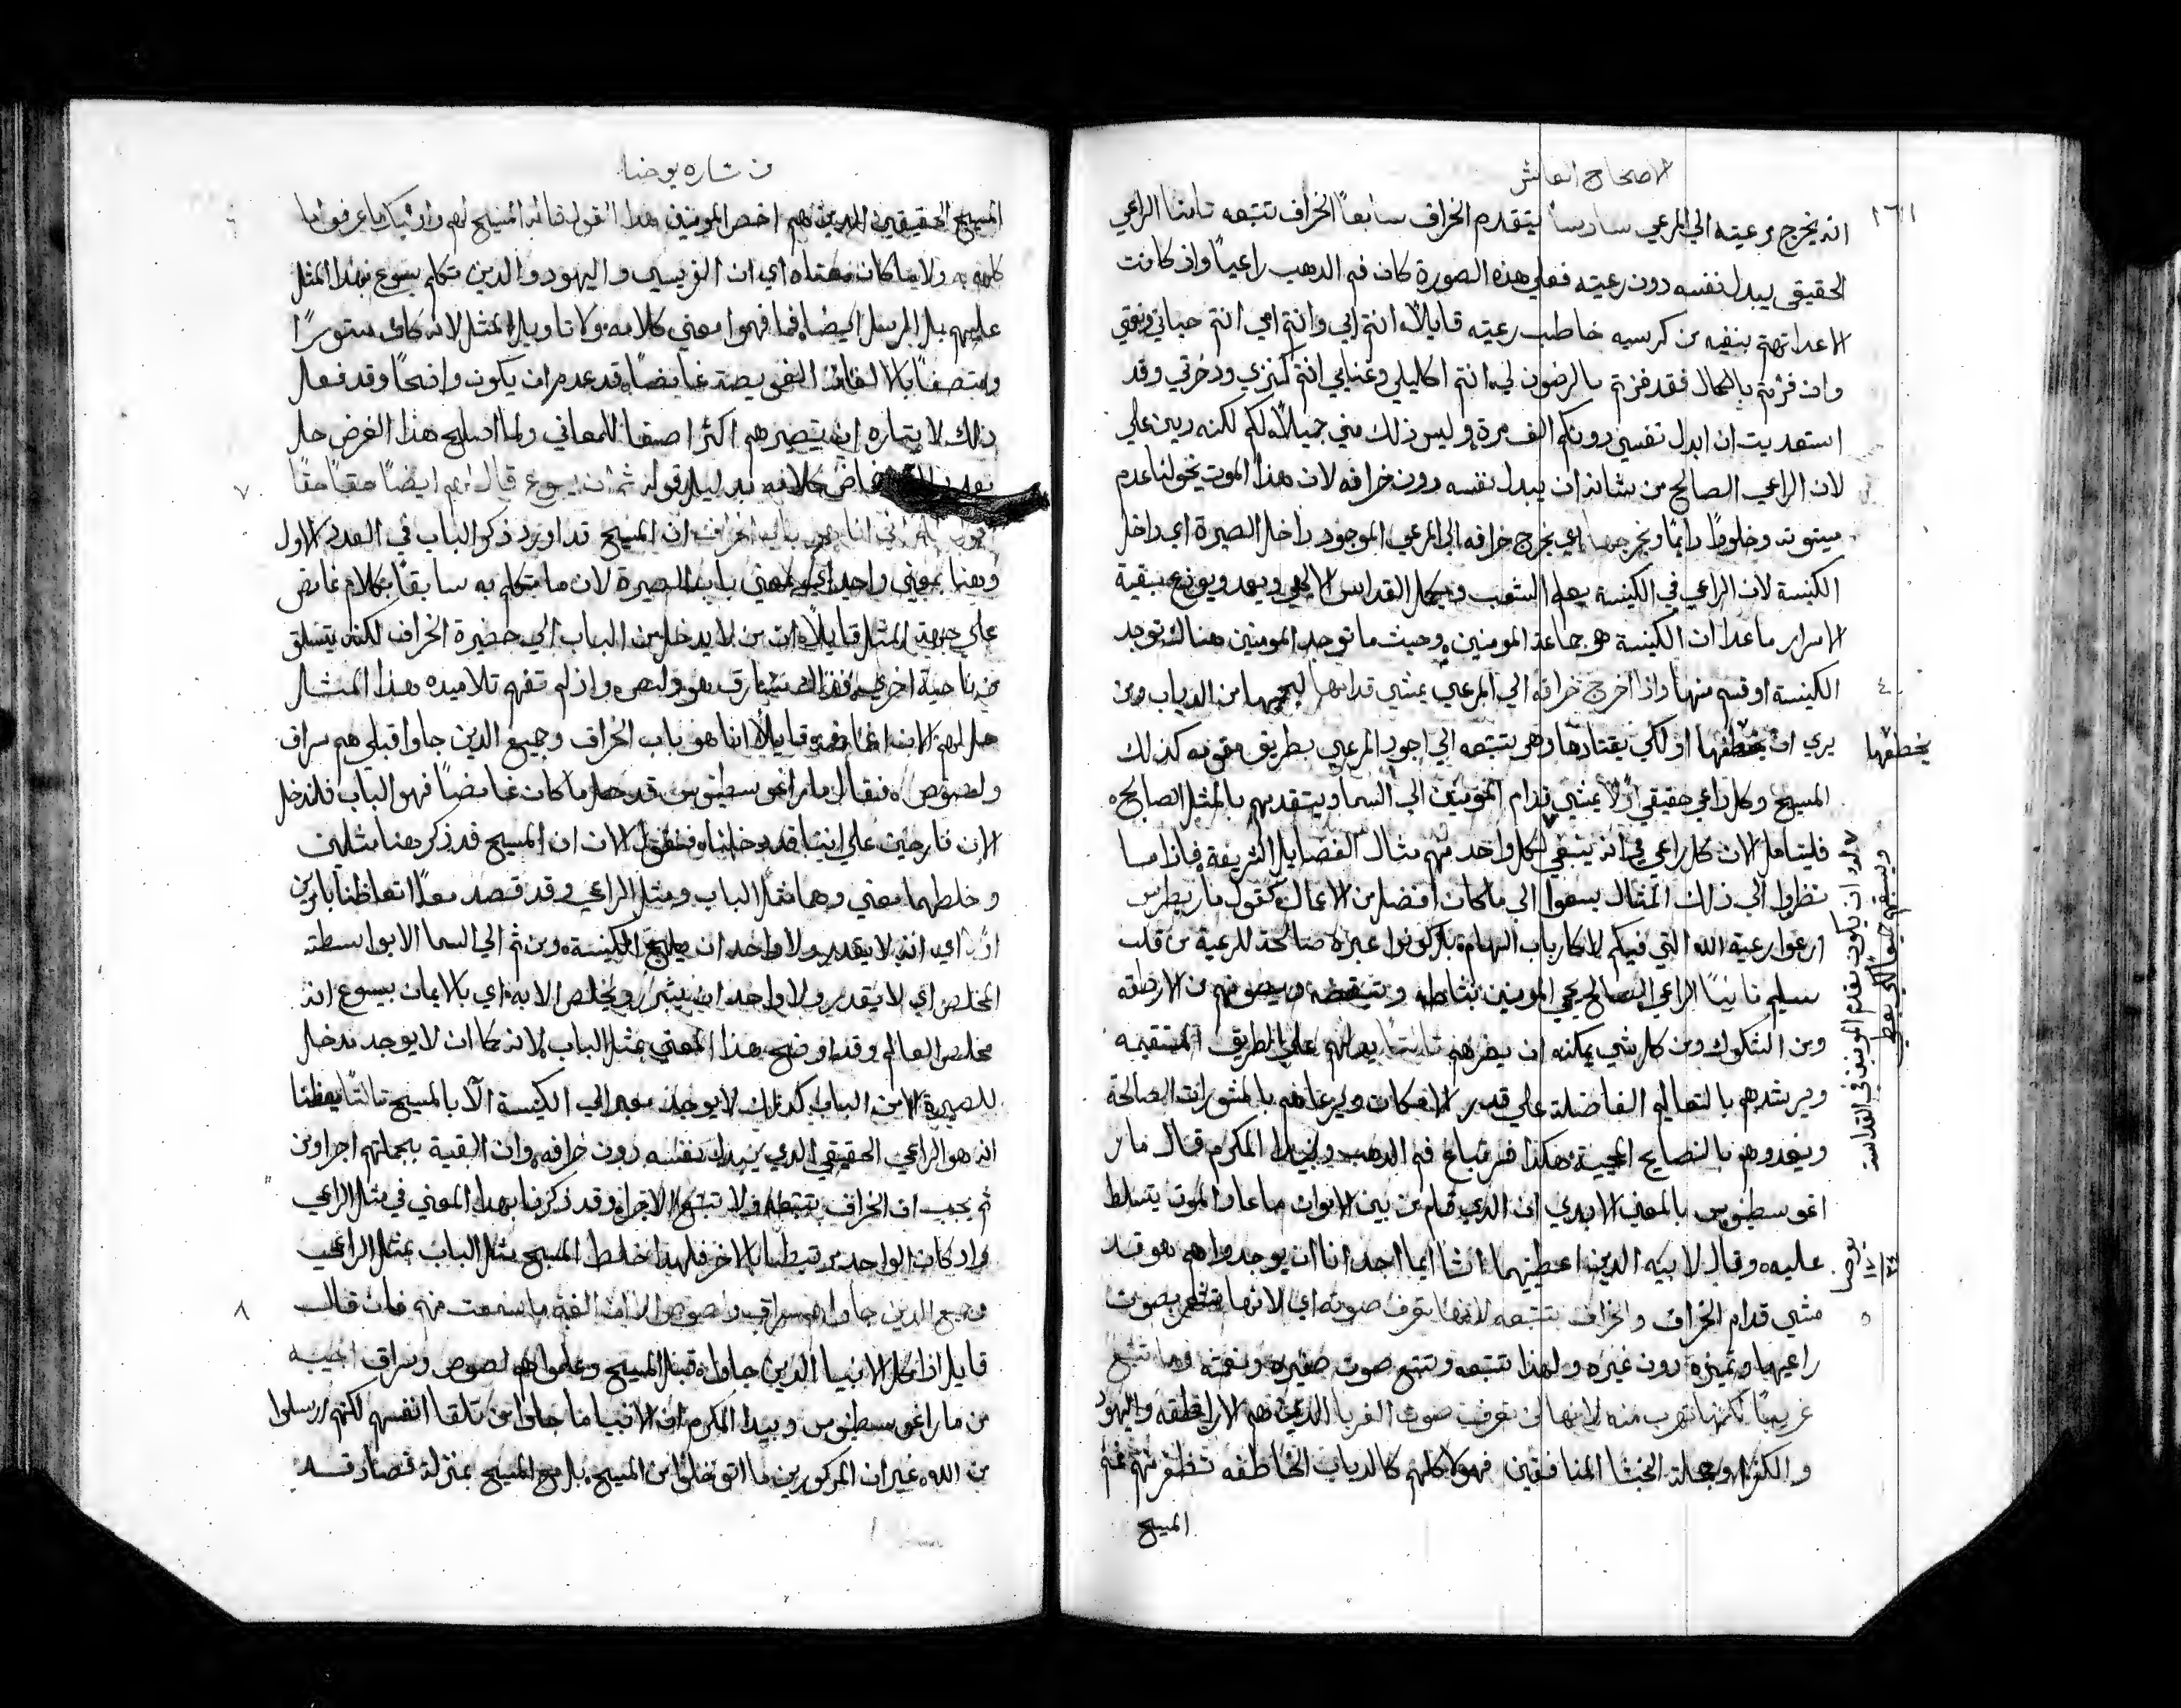 الاصحاح العاشر
١٦١
انه يخرج رعيته الي المرعي سادسا يتقدم الخراف سابعاً الخراف تتبعه تامنا الراعي
الحقيقي يبدل نفسه دون رعيته فعلي هذه الصورة كان فم الدهب راعياً واذ كانت
الاعدا تهتم بنفيه من كرسيه خاطب رعيته قايلاً انتم ابي وانتم امي انتم حياتي
وان فزتم بالكمال فقد فزتم بالرضون لي انتم اكاليلي وغنايي انتم كنزي ودخرتي وقد
استعديت ان ابدل نفسي دونكم الف مرة وليس ذلك مني جميلاً لكم لكنه دين علي
لان الراعي الصالح من شانه ان يبدل نفسه دون خرافه لان هذا الموت يخولنا عدم
ميتوته وخلوداً دايماً ويخرجها اي يخرج خرافه الي المرعي الموجود داخل الصيرة اي داخل
الكنيسة لان الراعي في الكنيسة يعلم الشعب ويكمل القداس الالهي ويعمد ويوزع بقية
الاسرار ماعدا ان الكنيسة هو جماعة المومنين وحيث ما توجد المومنين هناك توجد
٤
الكنيسة او قسم منها واذا اخرج خرافه الي المرعي يمشي قدامها ليحميها من الدياب ومن
يري ان يخطفها او لكي يقتادها وهي تتبعه الي اجود المرعي بطريق مقومه كذلك
يخطفها
المسيح وكل راعي حقيقي اولاً يمشي قدام المومنين الي السما ويتقدمهم بالمثل الصالح
فليتامل الان كل راعي في انه ينبغي لكل واحد منهم مثال الفضايل الشريفة فاذا ما
نظروا الي ذلك المثال يسعوا الي ما كان افضل من الاعمال كقول مار بطرس
ارعوا رعية الله التي فيكم لا كارباب السهام بل كونوا عبرة صالحة للرعية من قلب
سليم تانياً الراعي الصالح يحمي المومنين بنشاطه وتيقضه ويصونهم من الارطقه
ومن الشكوك ومن كل شي يمكنه ان يضرهم تالتاً يدلهم علي الطريق المستقيمه
ويرشدهم بالتعاليم الفاضلة علي قدر الامكان ويرعاهم بالمشورات الصالحة
ويغدوهم بالنصايح المحيية هكذا فسر تباع فم الدهب وبيدا المكرم قال مار
اغوسطينوس بالمعني الابدي ان الذي قام من بين الاموات ما عاد الموت يتسلط
عليه وقال لابيه الدين اعطيتهما انشا ايما اجد انا ان يوجدوا هم هوقد
٥
مشي قدام الخراف والخراف تتبعه لانها تعرف صوته اي لانها تشعر بصوت
راعيها وتميزه دون غيره ولهذا تتبعه وتتبع صوت صفيره ونغمته وما تتبع
غريباً لكنها تهرب منه لانها لن تعرف صوت الغربا الدين هم الاراطقه واليهود
والكفرا وجملة الخبثا المنافقين فهولا كلهم كالدياب الخاطفه تظفر منهم غنم
المسيح
من بشاره يوحنا
المسيح الحقيقيين الدين هم اخص المومنين هذا القول قاله المسيح لهم واوليك ما عرفوا ما
كلمهم به ولا ما كان معناه اي ان الفريسي واليهود والدين تكلم يسوع بهذا المثل
عليهم بل الرسل ايضاً فما فهموا معني كلامه ولا تاويل المثل لانه كان مستوراً
ومتصفاً بالالفاظ الغويصة غامضاً قد عدم ان يكون واضحاً وقد فعل
ذلك لايتاره ان يصيرهم اكثر اصغا للمعاني ولما اصلح هذا الغرض حل
٧
كلامه بدليل قوله ثم ان يسوع قال لهم ايضاً حقاً حقاً
اقول لكم اني انا هو باب الخراف ان المسيح قد اورد ذكر الباب في العدد الاول
وهنا بمعني واحد اي بمعني باب الصيرة لان ما تكلم به سابقاً بكلام غامض
علي جهة المثل قايلاً ان من لا يدخل من الباب الي حضيرة الخراف لكنه يتسلق
من ناحية اخري فذلك سارق هو ولص واذ لم تفهم تلاميده هذا المثال
حل لهم الان اغامضه قايلاً انا هو باب الخراف وجميع الدين جاوا قبلي هم سراق
ولصوص فقال مار اغوسطينوس قد حل ما كان غامضاً فهو الباب فلندخل
الان فارحين علي اننا قد دخلنا فنقول الان ان المسيح قد ذكر هنا مثلين
وخلطهما معني وهما مثل الباب ومثل الراعي وقد قصد معاً اتعاظنا بامرين
اولاً اي انه لا يقدر ولا واحد ان يلج الكنيسة ومن ثم الي السما الا بواسطته
المخلص اي لا يقدر ولا واحد ان يتبرر ويخلص الا به اي بالايمان بيسوع انه
مخلص العالم وقد اوضح هذا المعني بمثل الباب لانه كما ان لا يوجد مدخل
للصيرة الا من الباب كذلك لا يوجد معبر الي الكنيسة الا بالمسيح تالتاً يعظنا
انه هو الراعي الحقيقي الدي يبدل نفسه دون خرافه وان البقية بجملتهم اجراومن
ثم يجب ان الخراف تتبعه ولا تتبع الاجرا وقد ذكرنا بهذا المعني في مثل الراعي
واذ كان الواحد مرتبطاً بالاخر فلهذا خلط المسيح مثل الباب بمثل الراعي
٨
وجميع الدين جاوا هم سراق ولصوص الا ان الغنم ما سمعت منهم فان قال
قايل اذاً كل الانبيا الدين جاوا قبل المسيح وعلموا هم لصوص وسراق اجيبه
من مار اغوسطينوس وبيدا المكرم ان الانبيا ما جاوا من تلقا انفسهم لكنهم ارسلوا
من الله غير ان المذكورين ما اتوا خلوا من المسيح بل مع المسيح بمنزلة قصاد قد